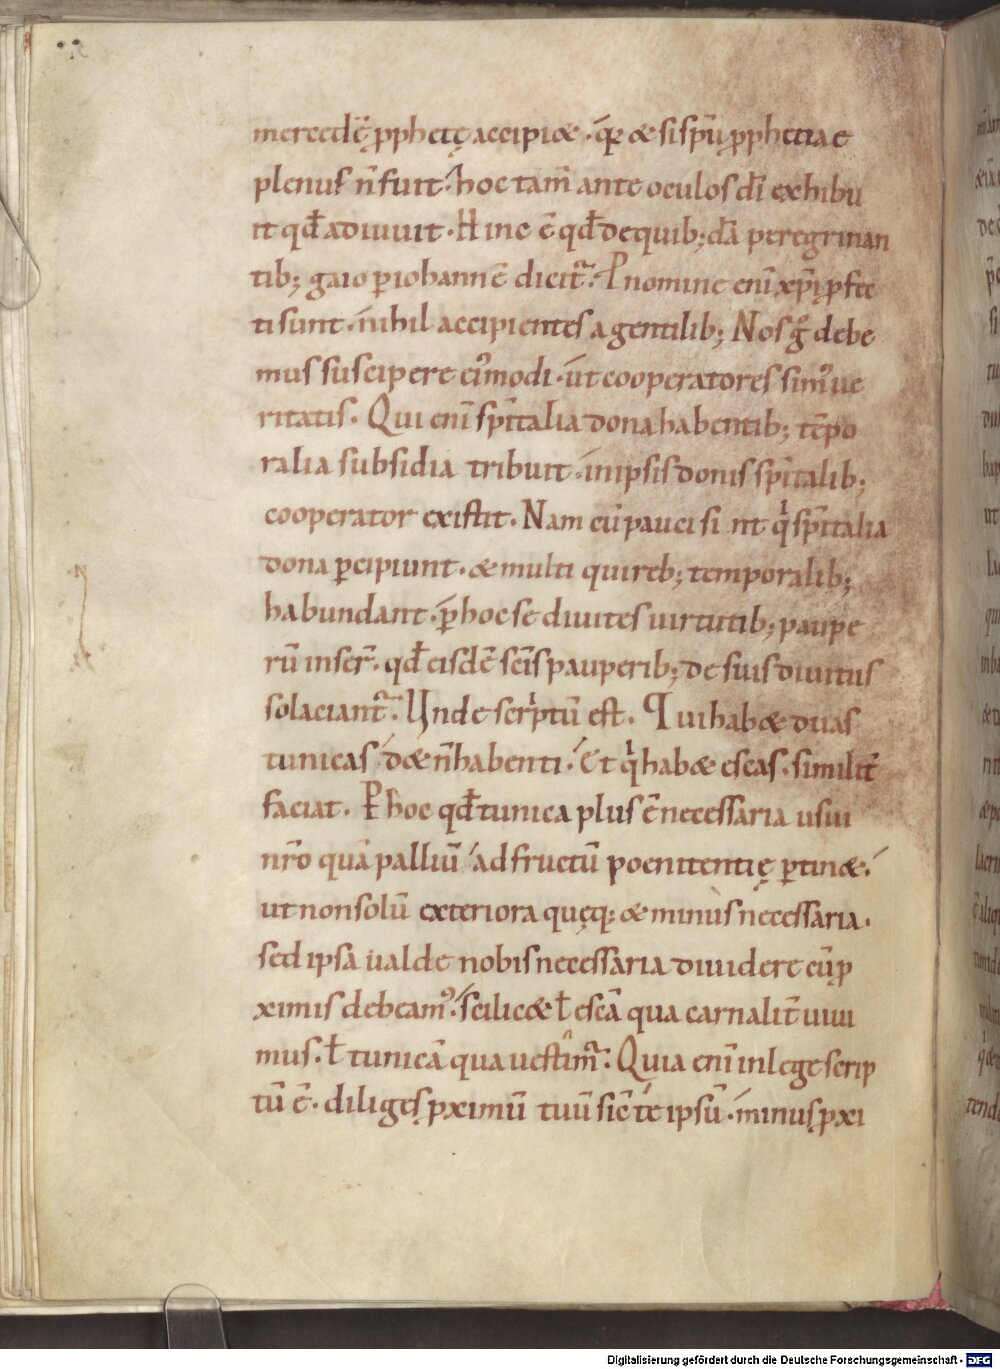 mercedē ꝓphetę accipiet · qr̄ et si spū ꝓphetiae
plenus n̄ fuit · hoc tam̄ ante oculos dī exhibu
it qđ adiuuit · Hinc ē qđ de quib; dā peregrinan
tib; gaio ꝑ iohannē dicit̄ · P nomine enī xp̄i ꝓfec
ti sunt · nihil accipientes a gentilib; Nos g̊ debe
mus suscipere eiꝰmodi · ut cooperatores simꝰ ue
ritatis · Qui enī spīritalia dona habentib; tēpo
ralia subsidia tribuit · in ipsis donis spīritalib;
cooperator existit · Nam cū pauci sint qͥ spīritalia
dona ꝑcipiunt · et multi qui reb; temporalib;
habundant · p̄ hoc se diuites uirtutib; paupe
rū inser̄ · qđ eisdē scīs pauperib; de suis diuitiis
solaciant̄ · Unde scrͥptū est · Qui habet duas
tunicas det n̄ habenti · Et qͥ habet escas · similit̄
faciat · P hoc qđ tunica plus ē necessaria usui
nr̄o quā palliū ad fructū poenitentię ꝑtinet ·
ut non solū exteriora quęq; et minus necessaria ·
sed ipsa ualde nobis necessaria diuidere cū ꝓ
ximis debeamꝰ · scilicet ł escā qua carnalit̄ uiui
mus · ł tunicā qua uestimr̄ · Quia enī in lege scrip
tū ē · diliges ꝓximū tuū sic̄ te ipsū · minus ꝓxi
Digitalisierung gefördert durch die Deutsche Forschungsgemeinschaft - DFG